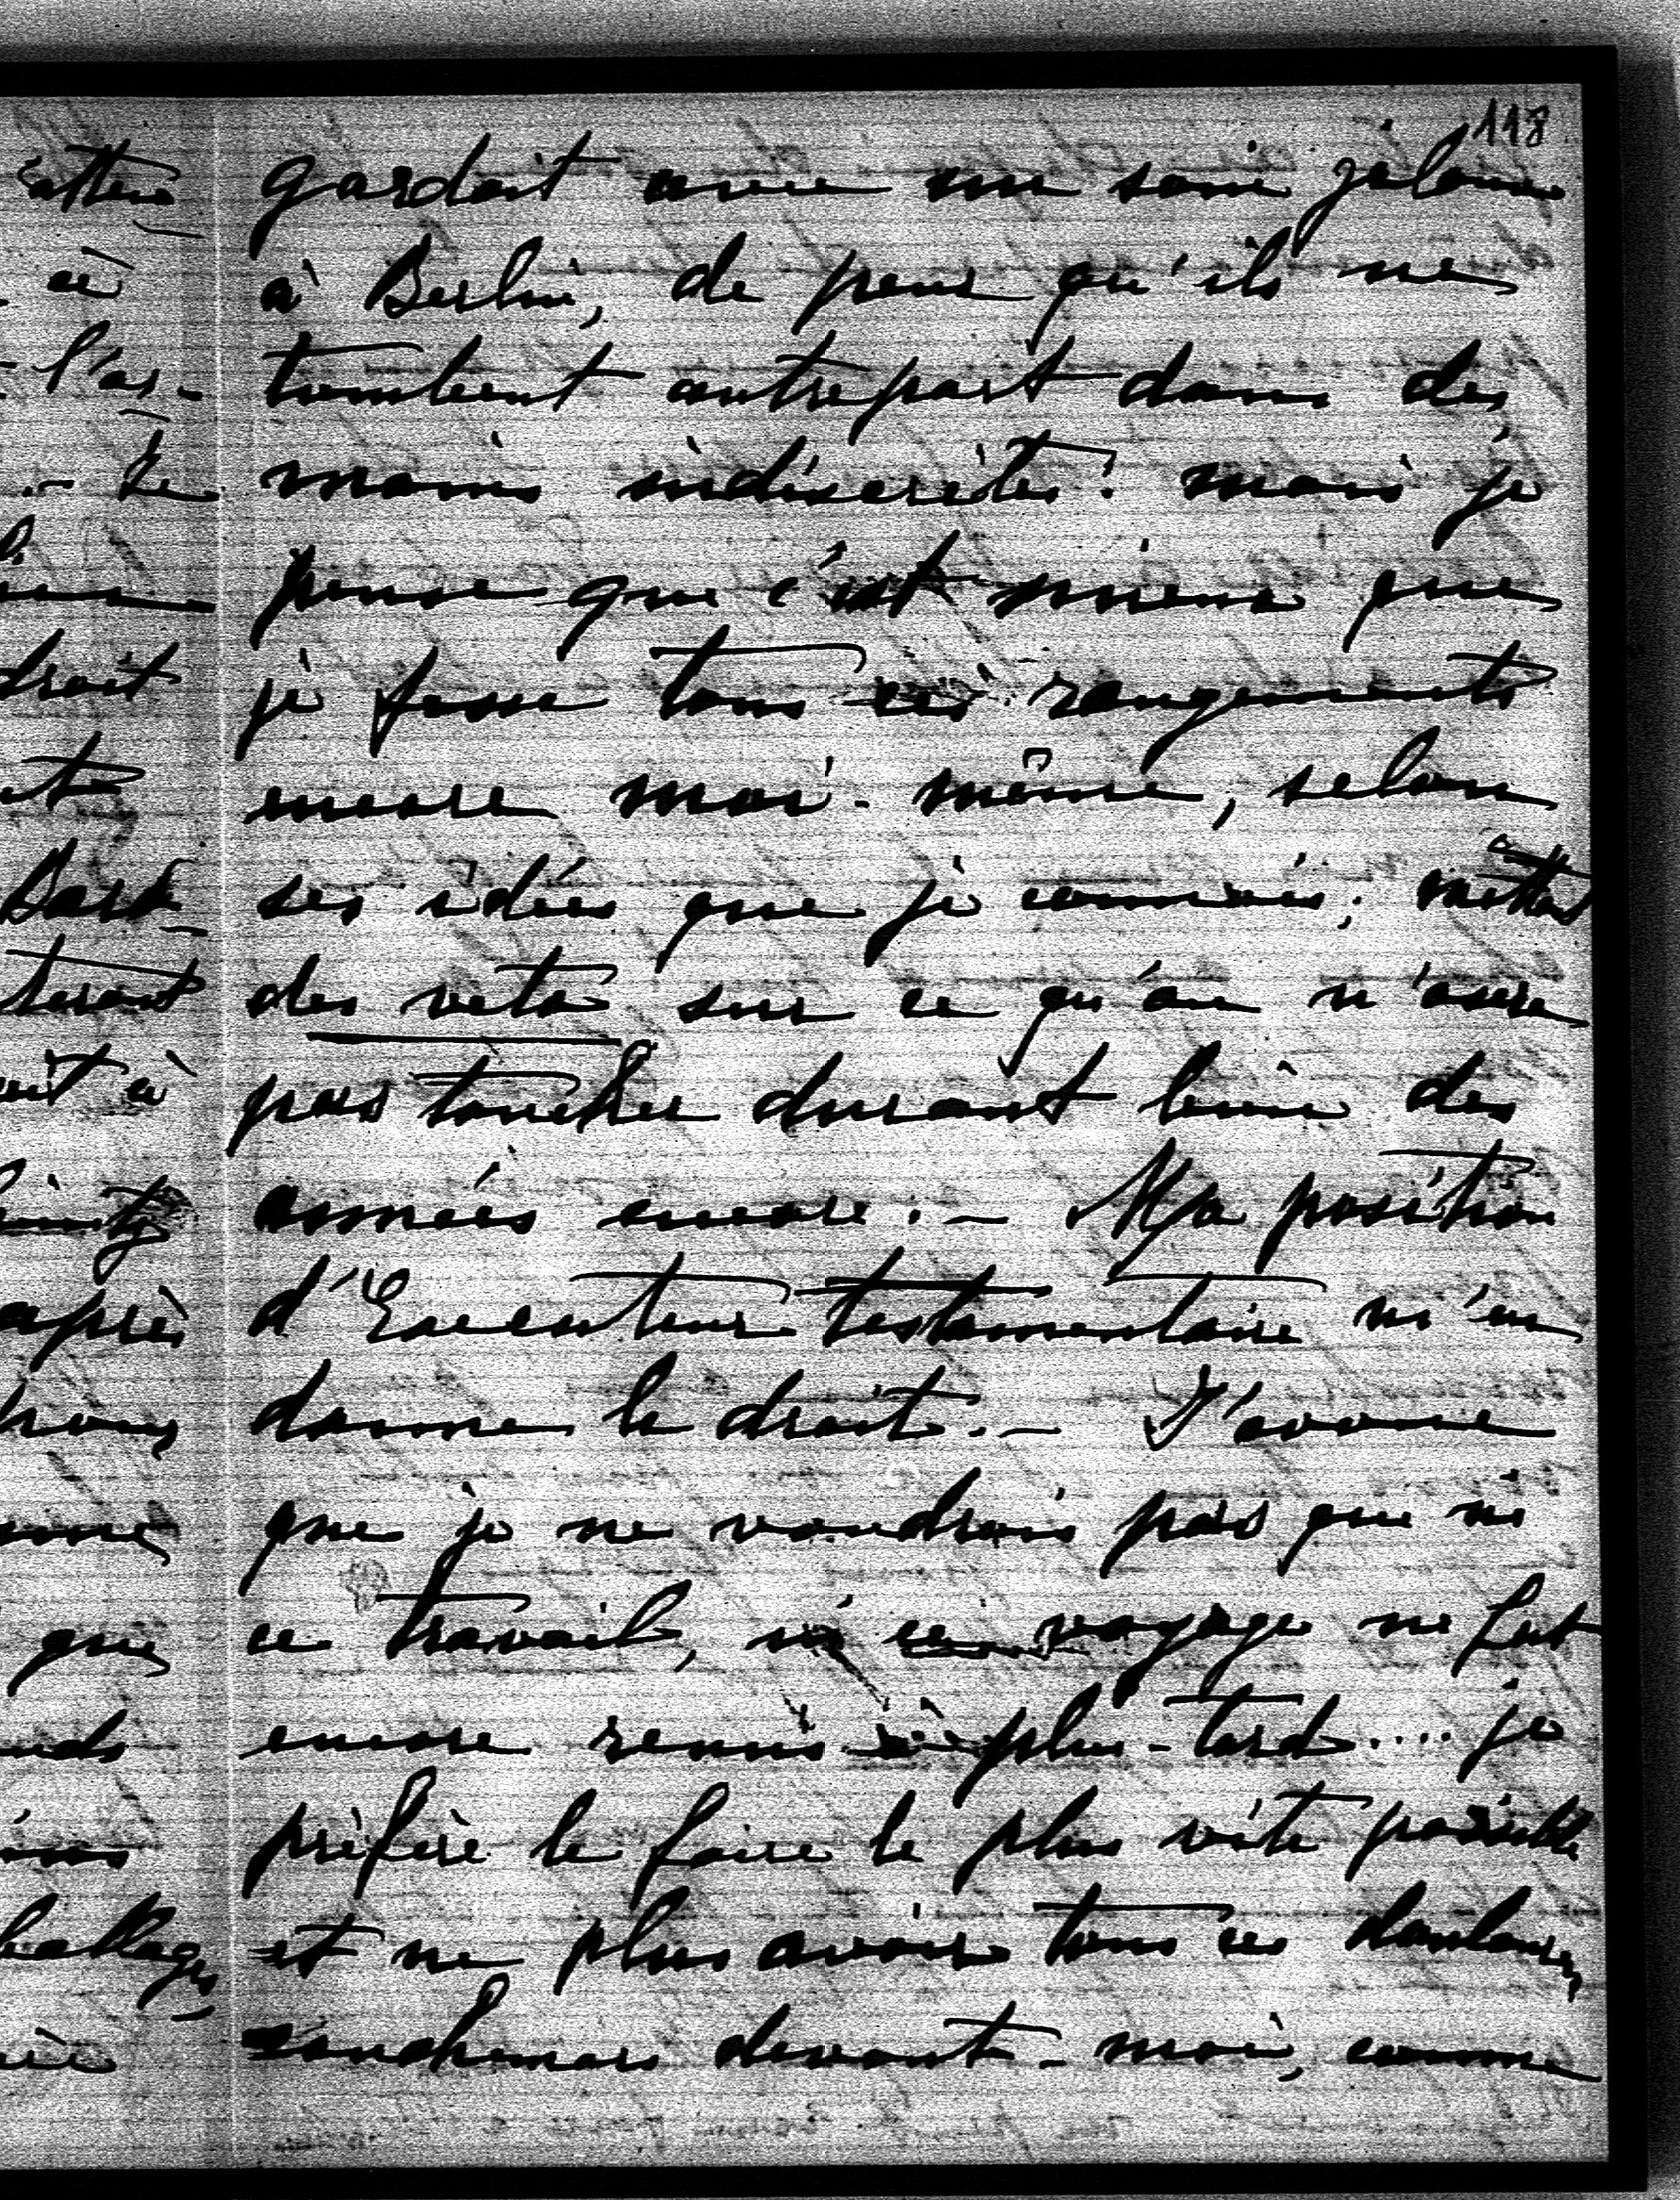 118
gardait avec un soin jaloux
à Berlin, de peur qu'ils ne
tombent autrepart dans des
mains indiscrètes: mais je
pense que c'est mieux que
je fasse tous ces rangements
encore moi-même, selon
ses idées que je connais; mettant
des veto sur ce qu'on n'osera
pas toucher durant bien des
années encore.— Ma position
d'Executeur testamentaire m'en
donne le droit.— J'avoue
que je ne voudrais pas que ni
ce travail, ni ce voyage ne fut
encore remis à plus-tard.... je
préfère le faire le plus vite possible
et ne plus avoir tous ces douloureux
devant-moi, comme
l'as-
droit
à
après
que